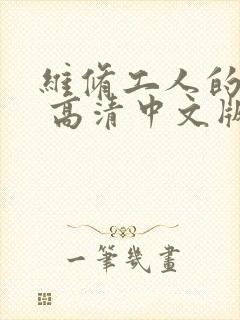 維脩工人的
高清中文版
一筆幾畫